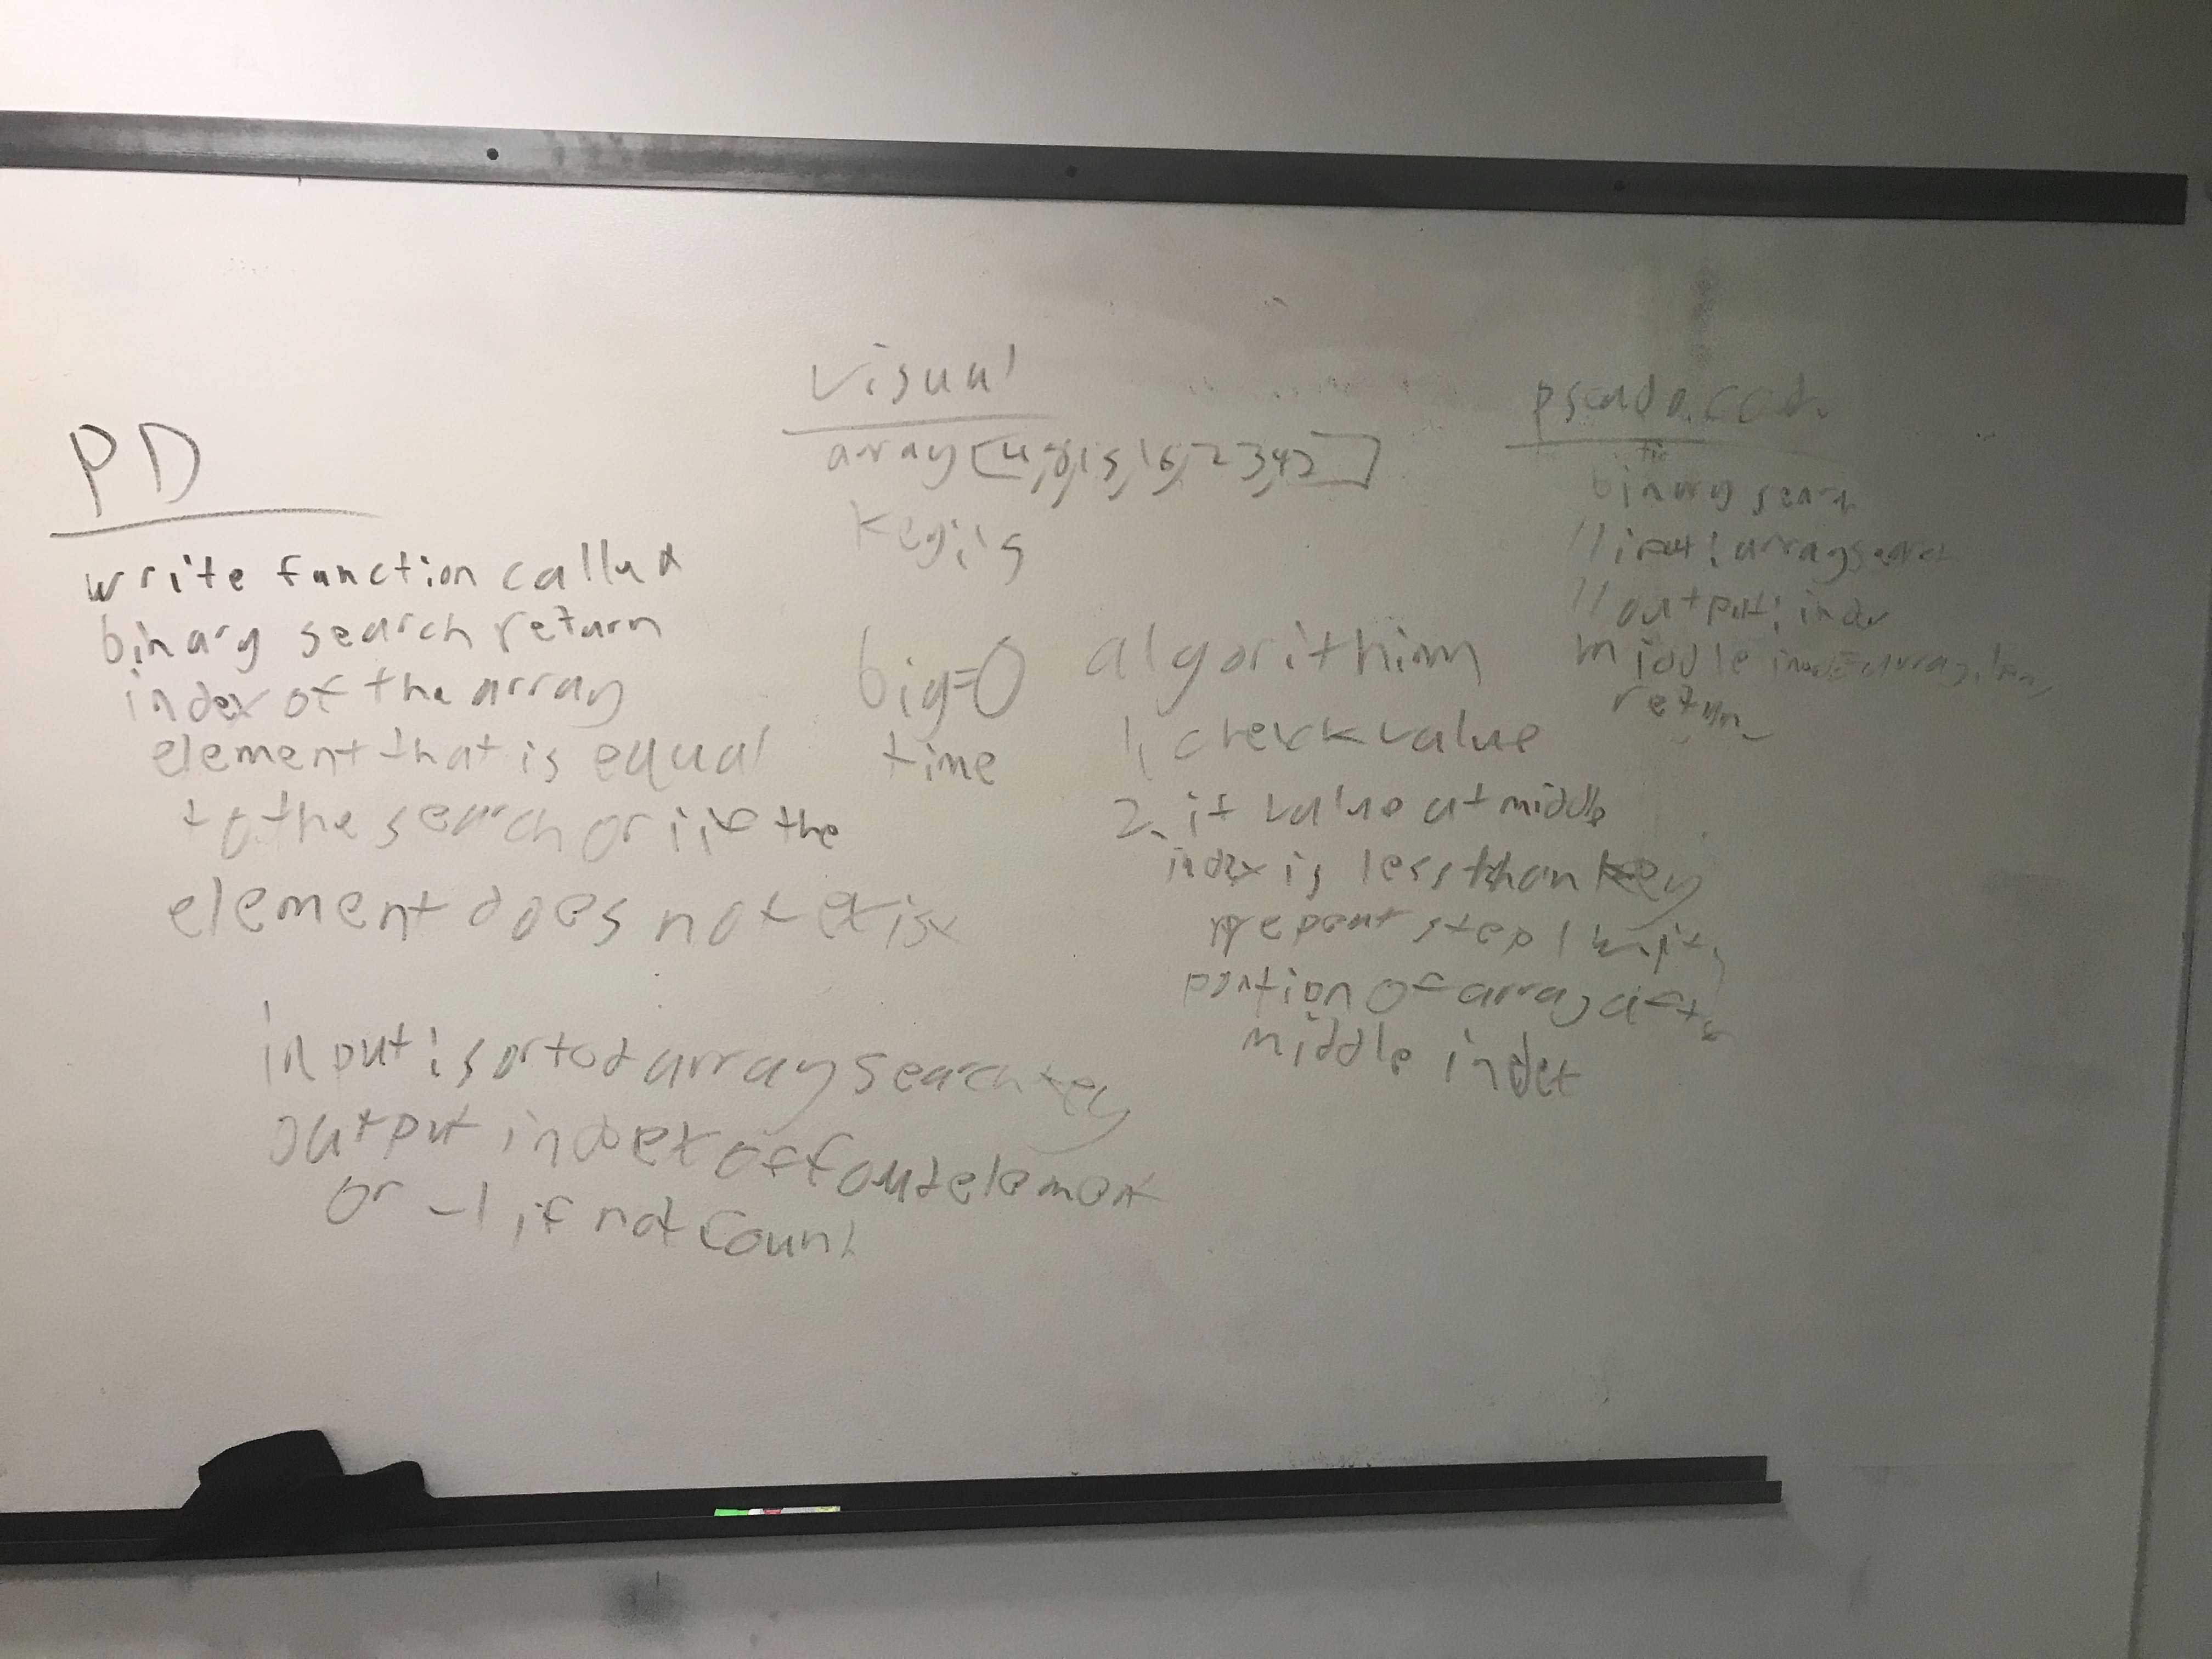 PD
write function called
binary search return
index of the array
element that is equal
to the search or i if the
element does not exist
input: sorted array search key
output index of found element
or -1, if not found
visual
array [4,8,15,16,23,42]
key: 15
big=O
time
algorithim
1, check value
2. if value at middle
index is less than key
repeat step 1 with
portion of array after
middle index
pseudo code
binary search
// input: array search
// output: index
middle index = array.
return